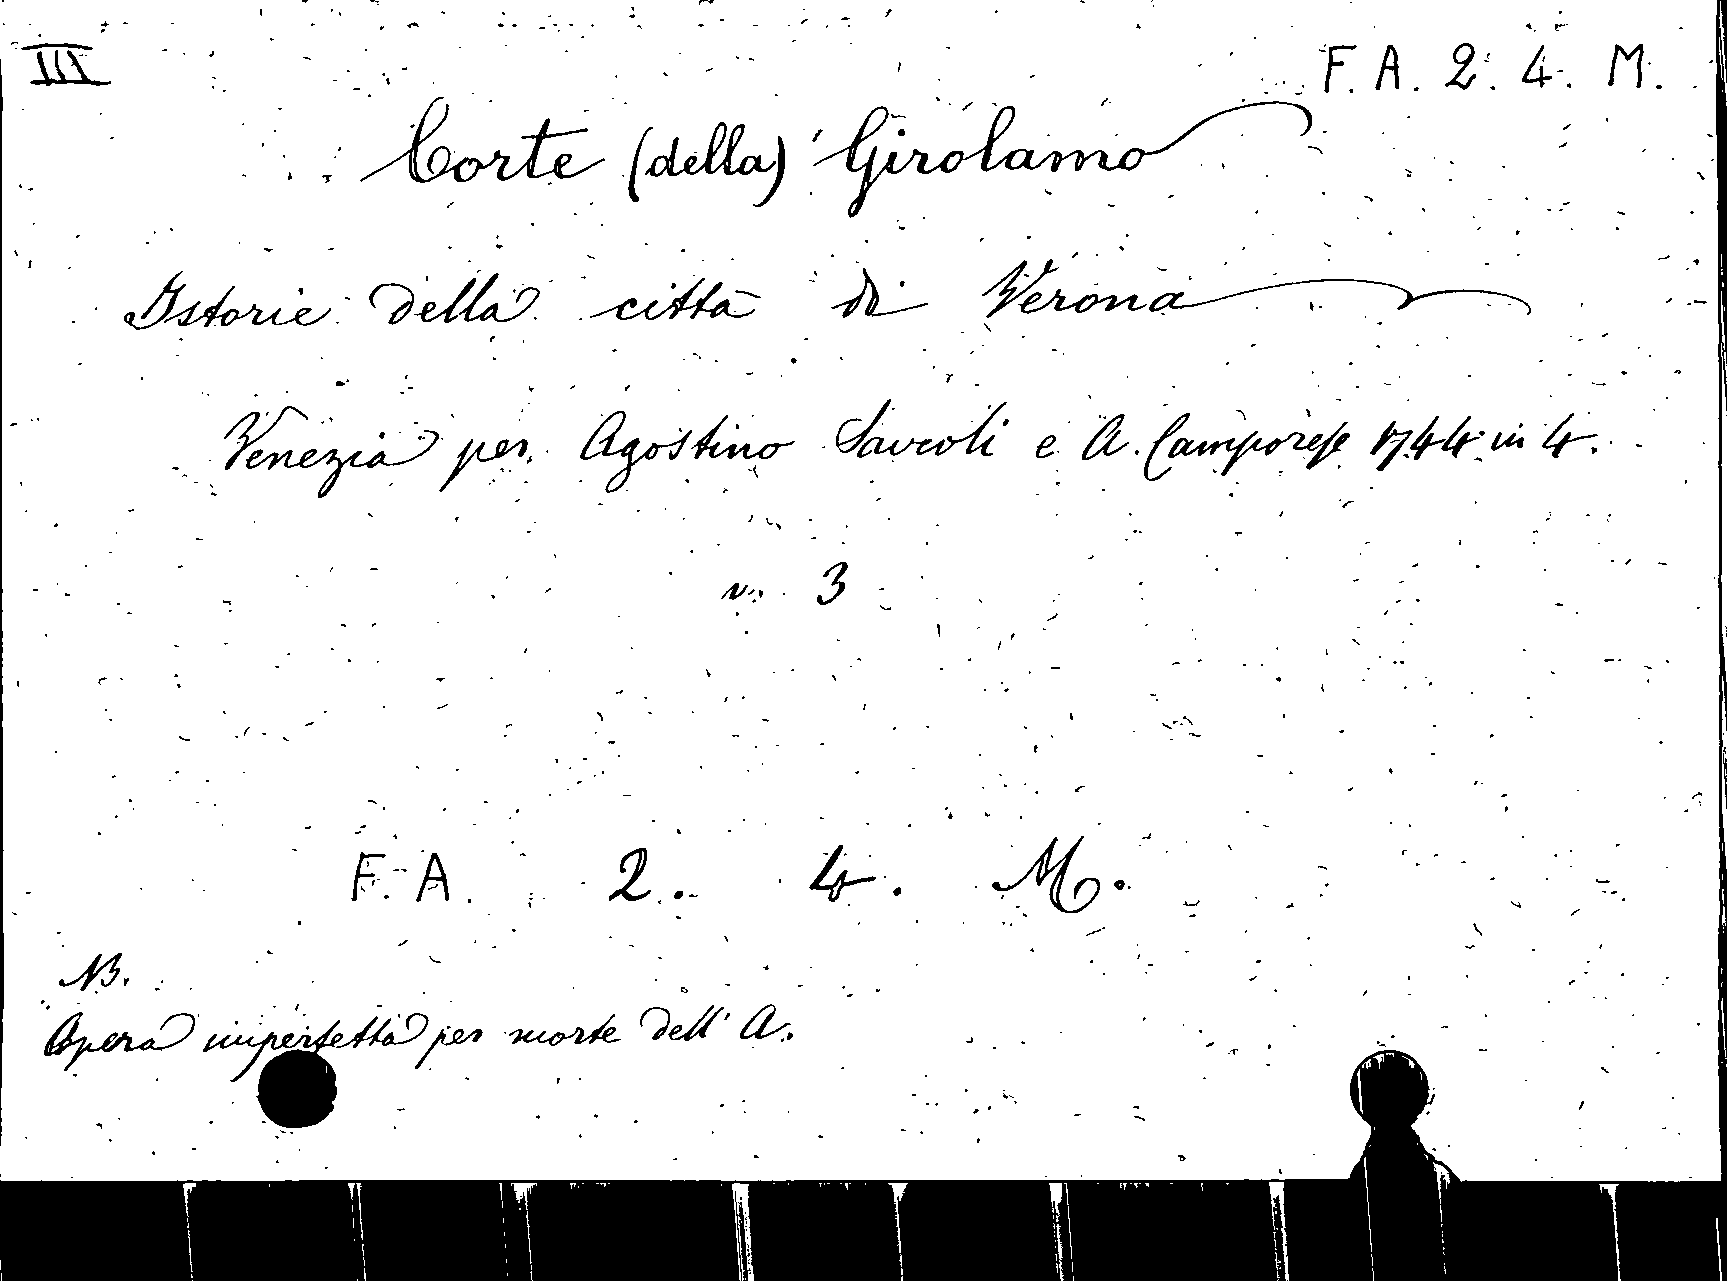 III
F. A. 2. 4. M.
Corte (della) Girolamo
Istorie della città di Verona
Venezia per Agostino Savioli e A. Camporese 1744 in 4.
v. 3
F. A. 2. 4. M.
NB.
Opera imperfetta per morte dell' A.